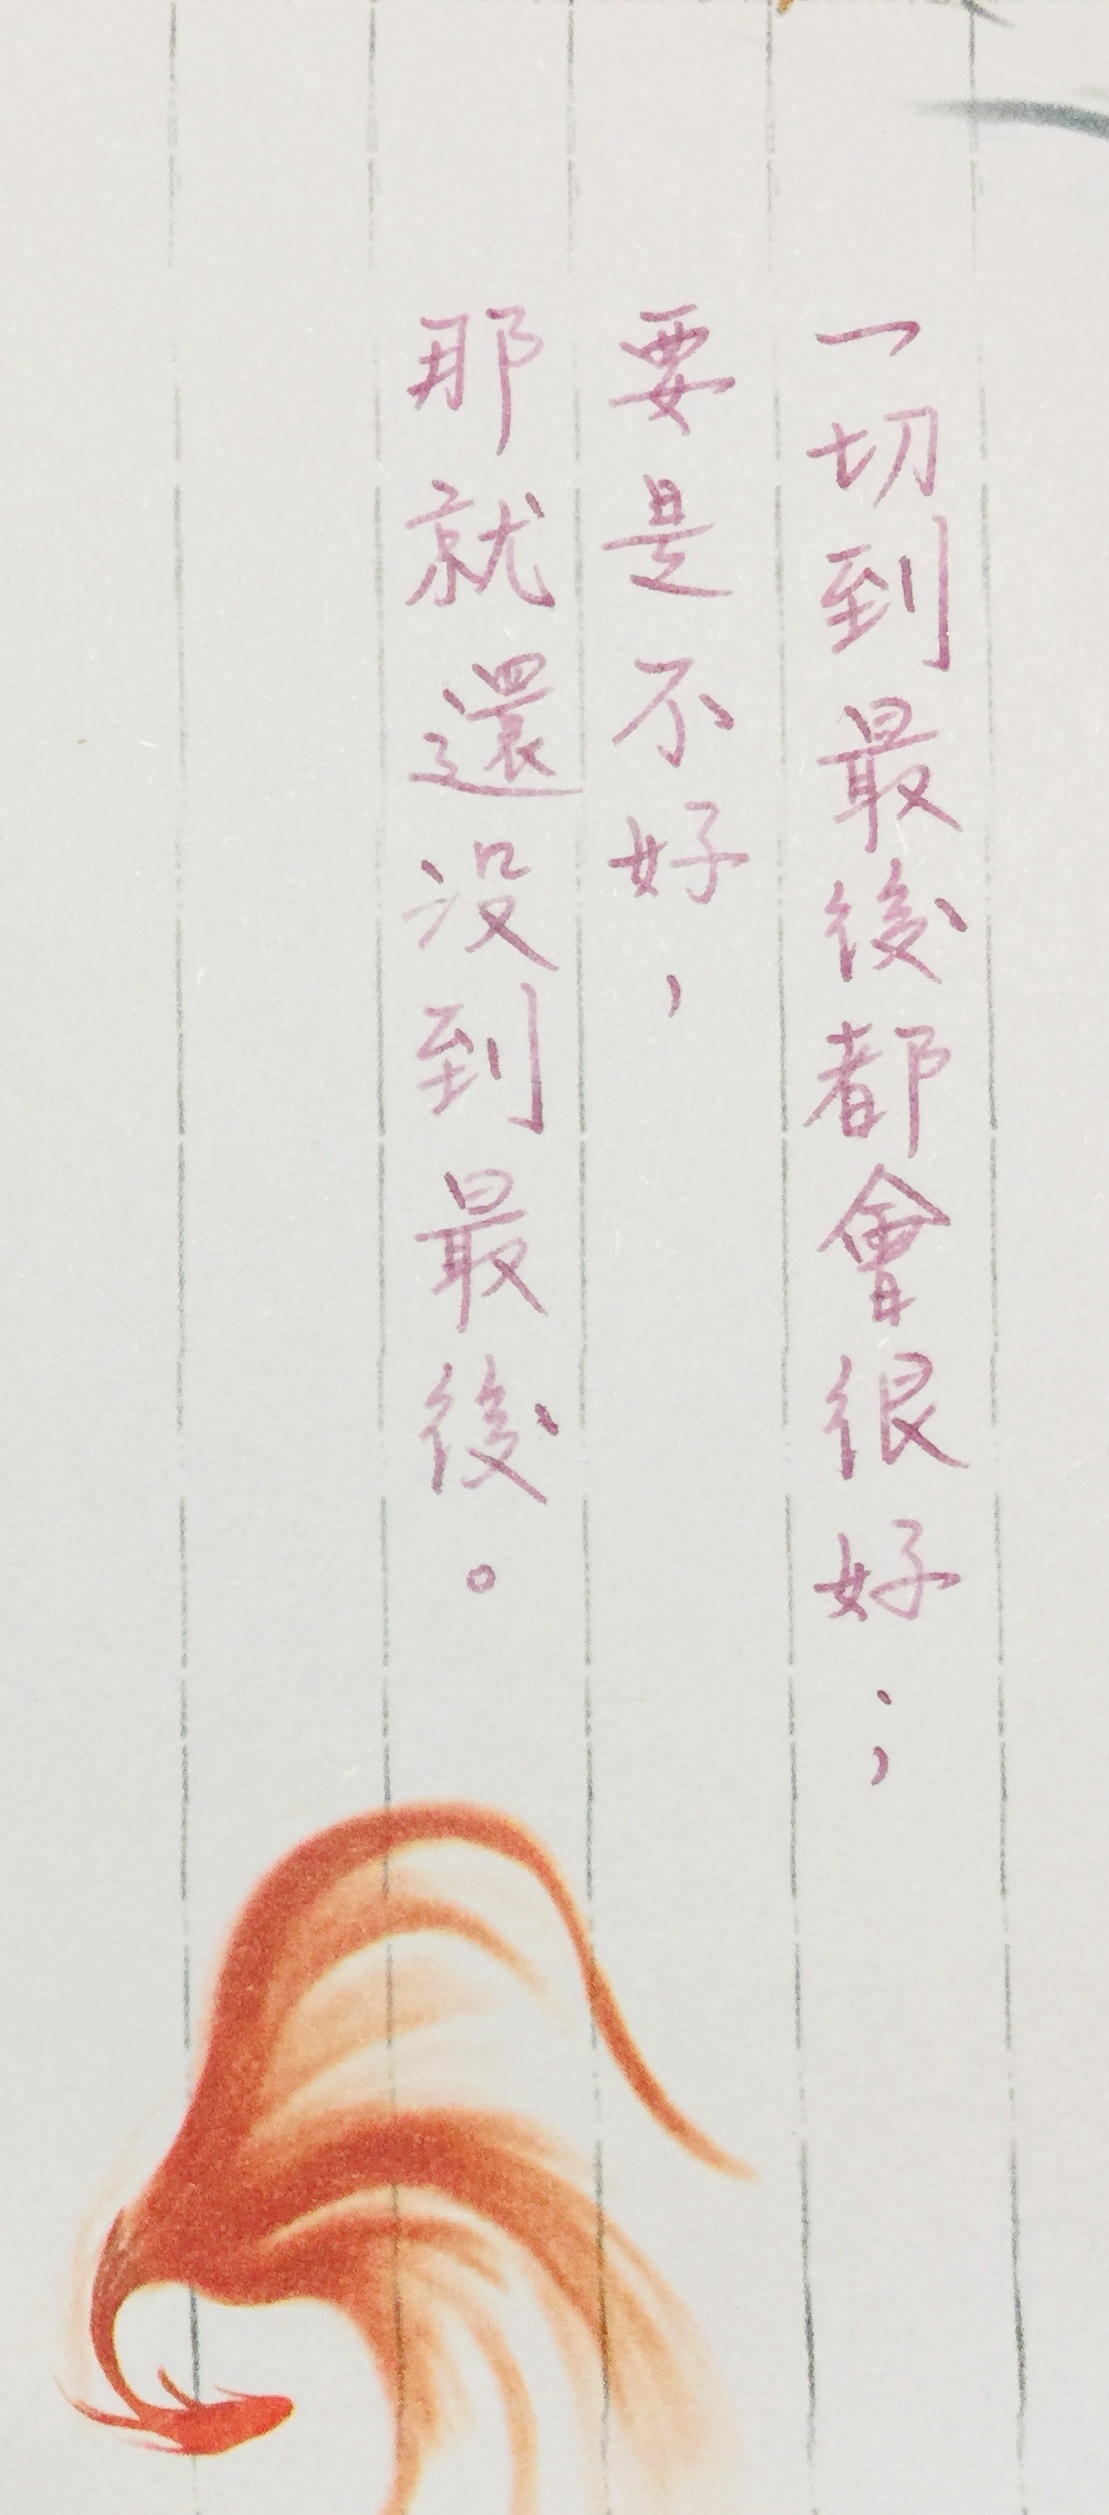 一切到最後都會很好；
要是不好，
那就還没到最後。